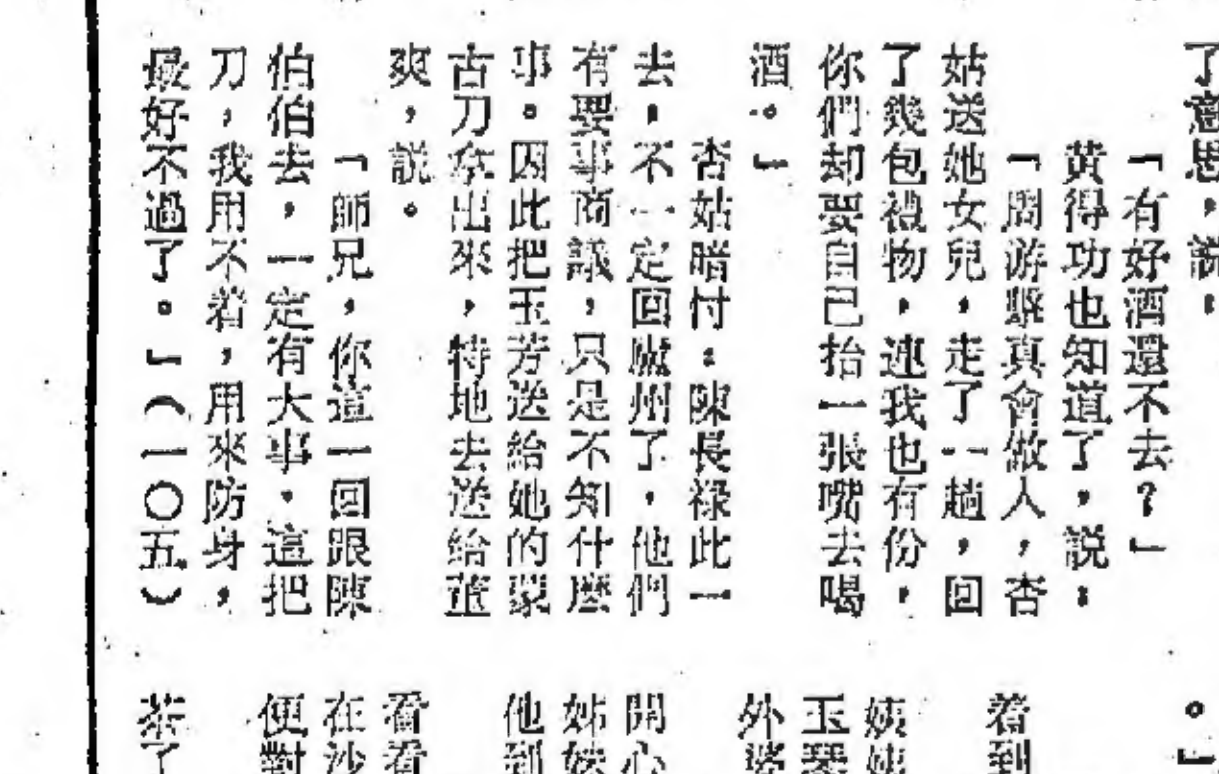 了意思，說：
「有好酒還不去？」
黄得功也知道了，説：
「周游擊真會做人，杏
姑送她女兒，走了一趟，回
了幾包禮物，連我也有份，
你們却要自己抬一張嘴去喝
酒。」
杏姑暗忖：陳長祿此一
去，不一定回廬州了，他們
有要事商議，只是不知什麼
事。因此把玉芳送給她的蒙
古刀拿出來，特地去送給董
爽，説。
「師兄，你這一回跟陳
伯伯去，一定有大事，這把
刀，我用不着，用來防身，
最好不過了。」（一〇五）
。」
着到
姨姨
玉琴
外婆
開心
姊妹
他到
看看
在沙
便對
茶了